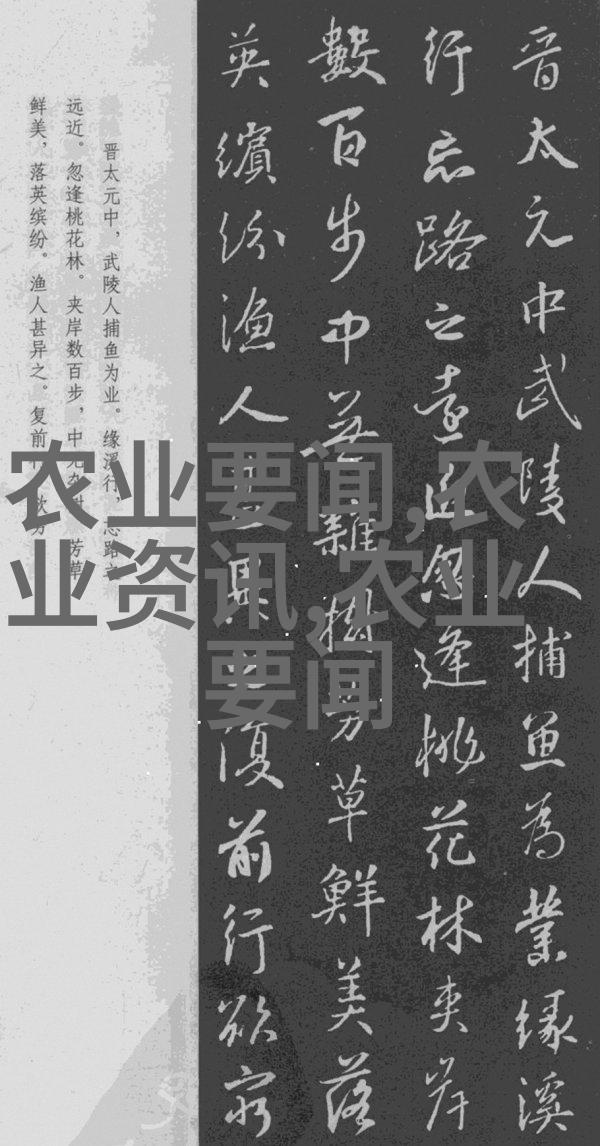 晋太元中武陵人捕鱼為業缘溪
行忘路之遠近忽逢桃花林夹岸
數百步中無雜樹芳草鮮美落
英繽纷漁人甚異之復前行欲窮
晋太元中，武陵人捕鱼为业。缘溪行，忘路之
远近。忽逢桃花林。夹岸数百步，中无杂树，芳草
鲜美，落英缤纷。渔人甚异之。复前行，欲穷
农业要闻,农
业资讯,农业
要闻